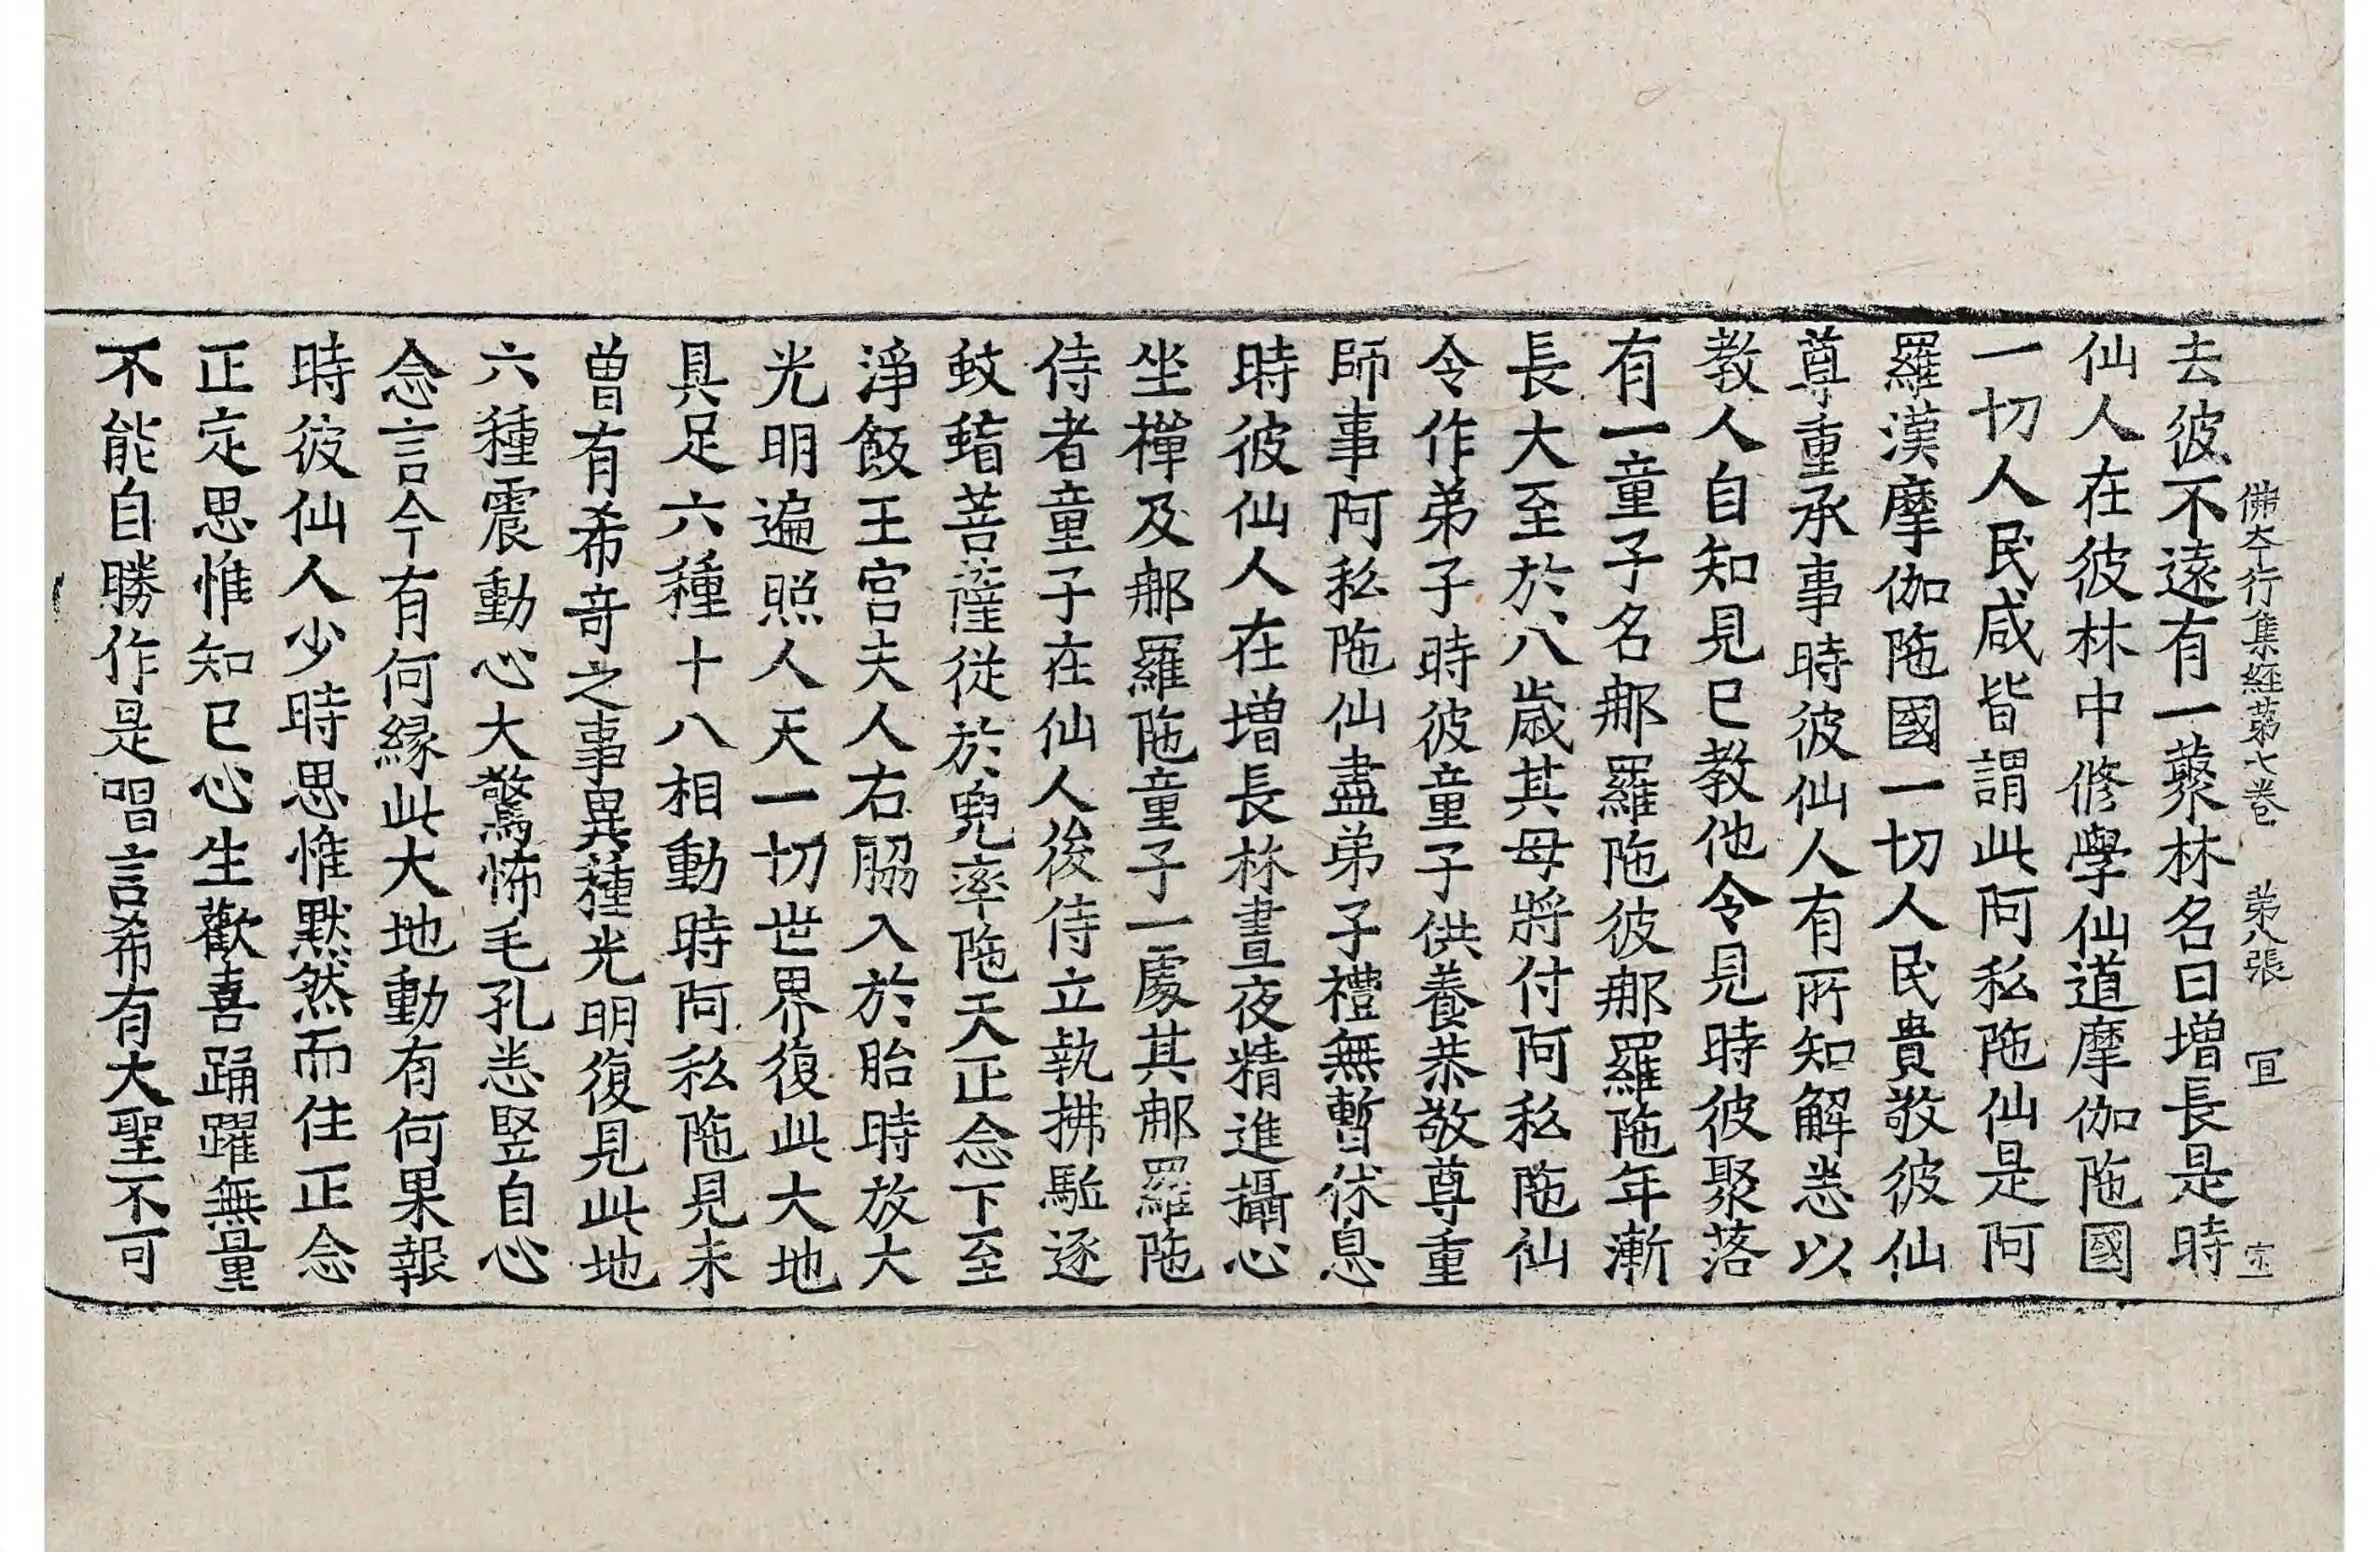 佛夲行集經苐七卷　苐八張　冝　宝
去彼不遠有一藂林名曰增長是時
仙人在彼林中修學仙道摩伽陁國
一切人民咸皆謂此阿私陁仙是阿
羅漢摩伽陁國一切人民貴敬彼仙
尊重承事時彼仙人有所知解悉以
教人自知見已教他令見時彼聚落
有一童子名那羅陁彼那羅陁年漸
長大至於八歲其母將付阿私陁仙
令作弟子時彼童子供養恭敬尊重
師事阿私陁仙盡弟子禮無暫休息
時彼仙人在增長林晝夜精進攝心
坐禪及那羅陁童子一處其那羅陁
侍者童子在仙人後侍立執拂駈逐
蚊䗈菩薩從於兜率陁天正念下至
淨飯王宮夫人右脇入於胎時放大
光明遍照人天一切世界復此大地
具足六種十八相動時阿私陁見未
曾有希竒之事異種光明復見此地
六種震動心大驚怖毛孔悉竪自心
念言今有何緣此大地動有何果報
時彼仙人少時思惟默然而住正念
正定思惟知已心生歡喜踊躍無量
不能自勝作是唱言希有大聖不可